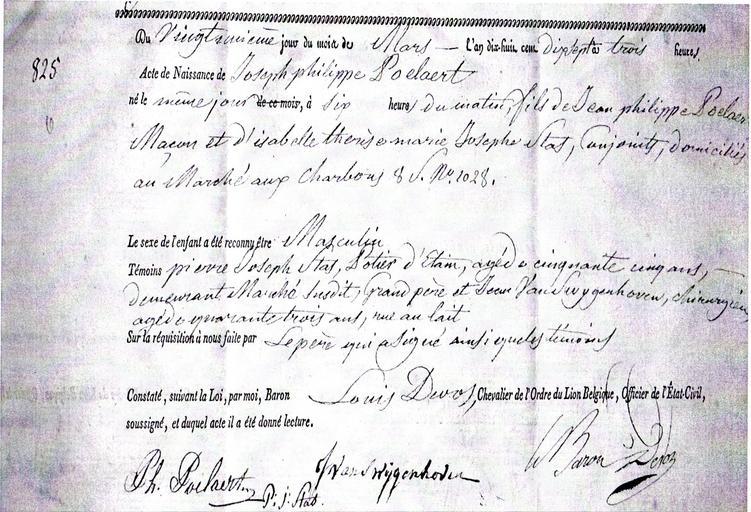 Du Vingtunième jour du mois de Mars — L'an dix-huit cent dixsept à trois heures,
825
Acte de Naissance de Joseph philippe Poelaert
né le même jour de ce mois, à six heures du matin, fils de Jean philippe Poelaert
Maçon et d'isabelle therèse marie Josephe Stas, Conjoints, domiciliés
au Marché aux Charbons 8 S. No. 1028.
Le sexe de l'enfant a été reconnu être Masculin
Témoins pierre Joseph Stas, Potier d'Etain, agé de cinquante cinq ans, —
demeurant Marché Susdit, Grand père et Jean Van Swygenhoven, chirurgien
agé de quarante trois ans, rue au lait
Sur la réquisition à nous faite par Le père qui a signé ainsi que les témoins
Constaté, suivant la Loi, par moi, Baron Louis Devos, Chevalier de l'Ordre du Lion Belgique, Officier de l'État-Civil,
soussigné, et duquel acte il a été donné lecture.
Ph. Poelaert
P. J. Stas
J Van Swygenhoven
Baron Devos